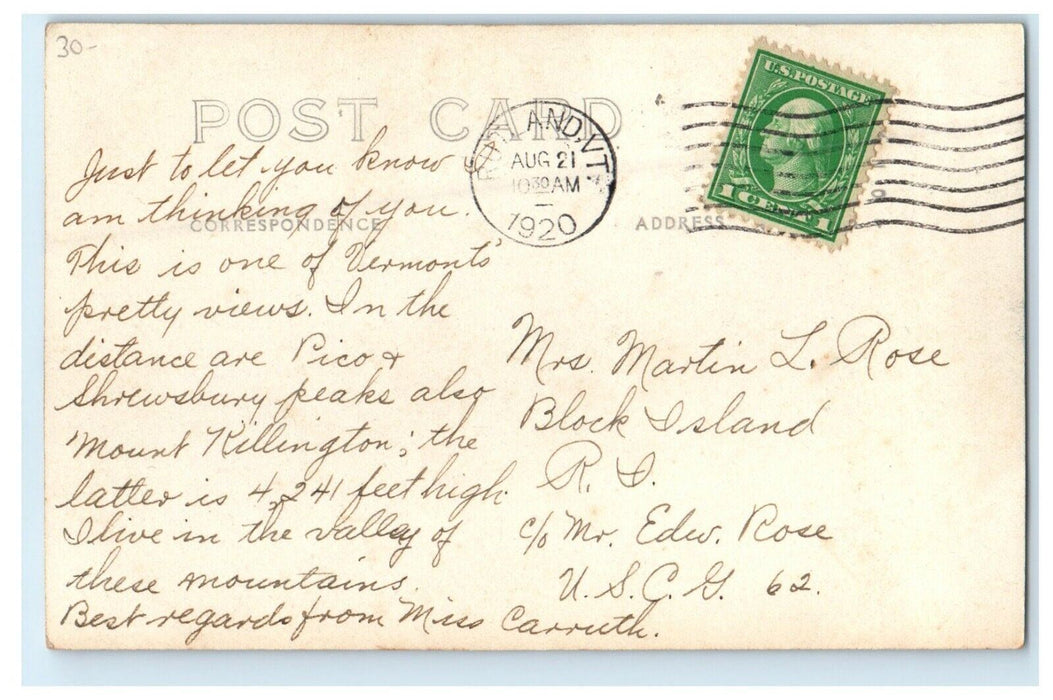 30-
POST CARD
RUTLAND, VT.
AUG 21
10 30 AM
1920
U.S. POSTAGE
1 CENT 1
CORRESPONDENCE
ADDRESS
Just to let you know
am thinking of you.
This is one of Vermont's
pretty views. In the
distance are Pico +
Shrewsbury peaks also
Mount Killington; the
latter is 4,241 feet high.
I live in the valley of
these mountains.
Best regards from Miss Carruth.
Mrs. Martin L. Rose
Block Island
R. I.
c/o Mr. Edw. Rose
U. S. C. G. 62.